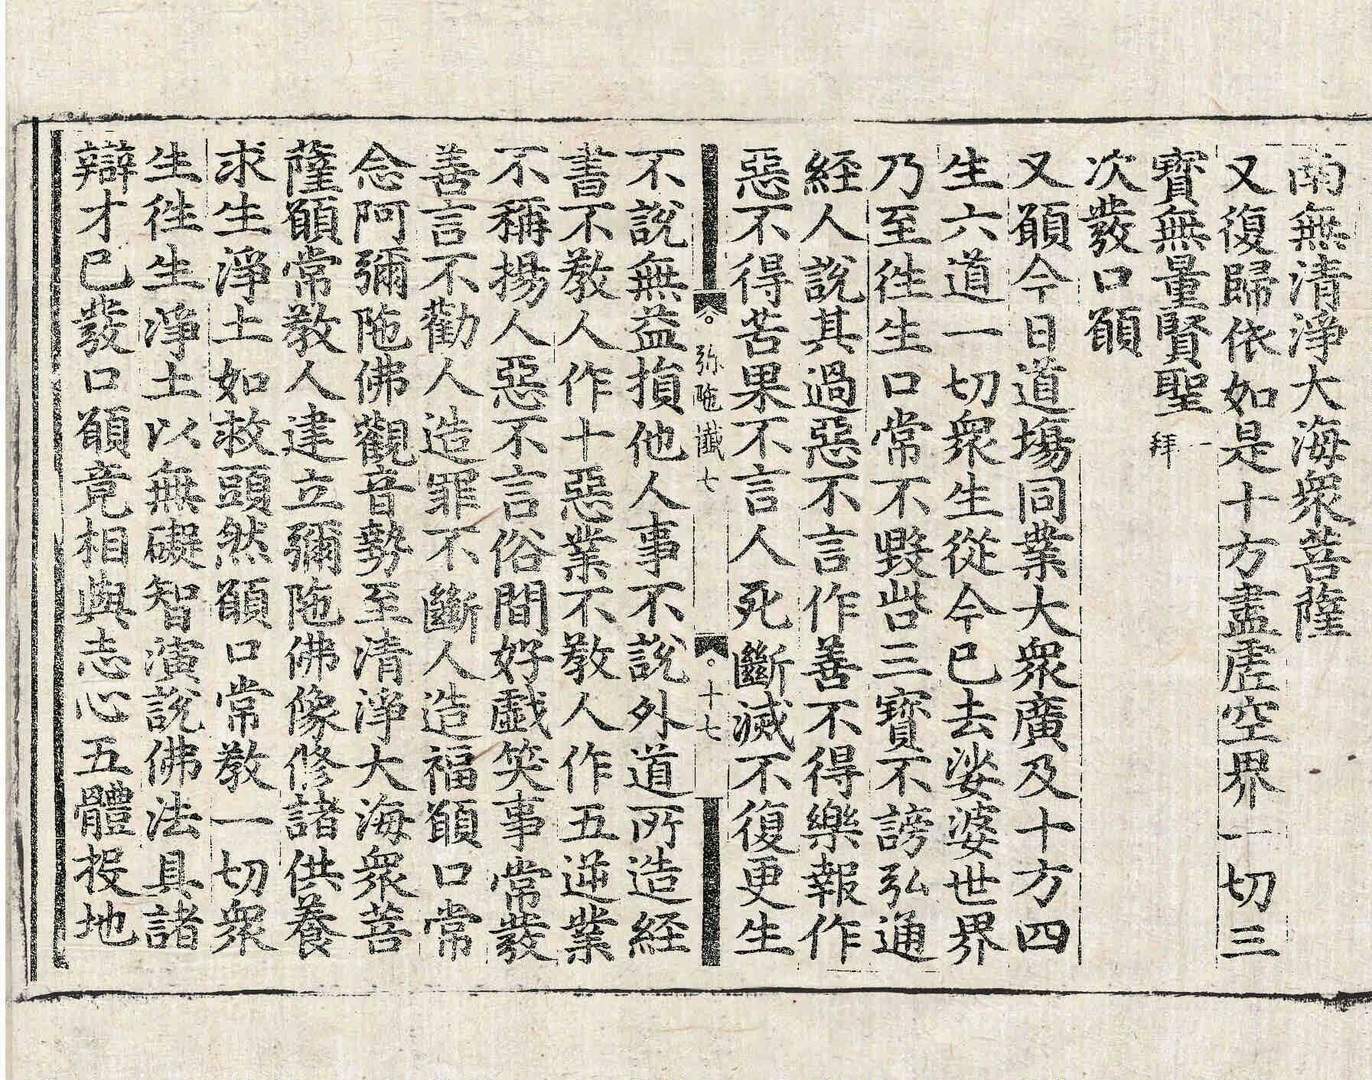 南無清淨大海衆菩薩
又復歸依如是十方盡虛空界一切三
寶無量賢聖一拜
次發口願
又願今日道場同業大衆廣及十方四
生六道一切衆生從今已去娑婆世界
乃至徃生口常不毀呰三寶不謗弘通
經人說其過惡不言作善不得樂報作
惡不得苦果不言人死斷滅不復更生
弥陁懴七 十七
不說無益損他人事不說外道所造經
書不教人作十惡業不教人作五逆業
不稱揚人惡不言俗間好戱笑事常發
善言不勸人造罪不斷人造福願口常
念阿彌陁佛觀音勢至清淨大海衆菩
薩願常教人建立彌陁佛像修諸供養
求生淨土如救頭然願口常教一切衆
生徃生淨土以無礙智演說佛法具諸
辯才已發口願竟相與志心五體投地